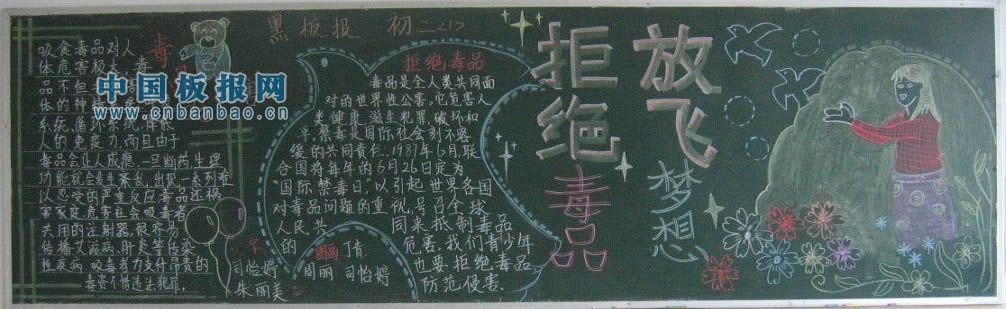 黑板报 初二<1>
毒品
吸食毒品对人
体危害极大,毒
品不但
体的神经
系统、循环系统、
人的免疫力,而且由于
毒品会让人成瘾,一旦断药生理
功能就会发生紊乱,出现一系列难
以忍受的严重反应毒品还祸
害家庭,危害社会吸毒者
共用的注射器,很容易
传播艾滋病、肝炎等传染
性疾病,吸毒者为支付昂贵的
毒资不惜违法犯罪.
中国板报网
www.cnbanbao.cn
拒绝毒品
毒品是全人类共同面
对的世界性公害,它危害人
类健康,滋生犯罪,破坏和
平,禁毒是国际社会刻不容
缓的共同责任.1987年6月,联
合国将每年的6月26日定为
"国际禁毒日",以引起世界各国
对毒品问题的重视,号召全球
人民共同来抵制毒品
的危害.我们青少年
也要拒绝毒品
防范侵害.
司怡婷
朱丽美
周丽 司怡婷
拒绝毒品
放飞梦想